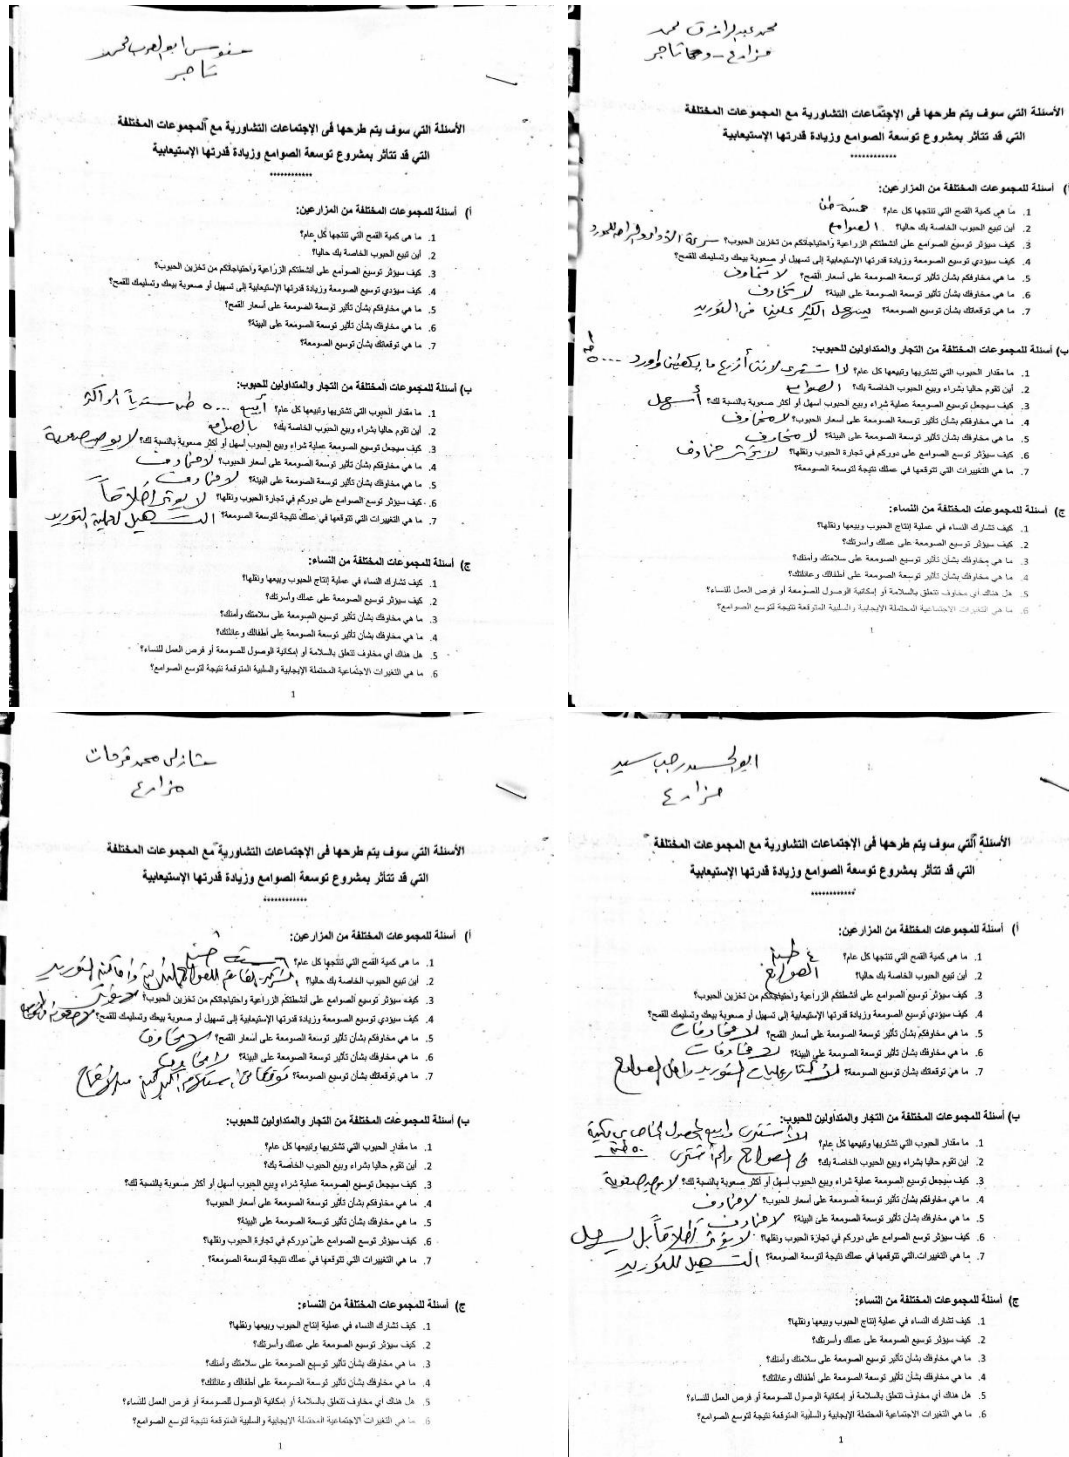 سنوسى ابو العرب محمد
تاجر
الأسئلة التي سوف يتم طرحها فى الإجتماعات التشاورية مع المجموعات المختلفة
التي قد تتأثر بمشروع توسعة الصوامع وزيادة قدرتها الإستيعابية
************
أ) أسئلة للمجموعات المختلفة من المزارعين:
1. ما هى كمية القمح التي تنتجها كل عام؟
2. أين تبيع الحبوب الخاصة بك حاليا؟
3. كيف سيؤثر توسيع الصوامع على أنشطتكم الزراعية واحتياجاتكم من تخزين الحبوب؟
4. كيف سيؤدي توسيع الصومعة وزيادة قدرتها الإستيعابية إلى تسهيل أو صعوبة بيعك وتسليمك للقمح؟
5. ما هي مخاوفكم بشأن تأثير توسعة الصومعة على أسعار القمح؟
6. ما هي مخاوفك بشأن تأثير توسعة الصومعة على البيئة؟
7. ما هي توقعاتك بشأن توسيع الصومعة؟
ب) أسئلة للمجموعات المختلفة من التجار والمتداولين للحبوب:
1. ما مقدار الحبوب التي تشتريها وتبيعها كل عام؟ أبيع ٥٠٠٠ طن سنوياً أو أكثر
2. أين تقوم حاليا بشراء وبيع الحبوب الخاصة بك؟ بالصوامع
3. كيف سيجعل توسيع الصومعة عملية شراء وبيع الحبوب أسهل أو أكثر صعوبة بالنسبة لك؟ لا يوجد صعوبة
4. ما هي مخاوفكم بشأن تأثير توسعة الصومعة على أسعار الحبوب؟ لا مخاوف
5. ما هي مخاوفك بشأن تأثير توسعة الصومعة على البيئة؟ لا مخاوف
6. كيف سيؤثر توسع الصوامع على دوركم في تجارة الحبوب ونقلها؟ لا يؤثر إطلاقاً
7. ما هي التغييرات التي تتوقعها في عملك نتيجة لتوسعة الصومعة؟ التسهيل لعملية التوريد
ج) أسئلة للمجموعات المختلفة من النساء:
1. كيف تشارك النساء في عملية إنتاج الحبوب وبيعها ونقلها؟
2. كيف سيؤثر توسيع الصومعة على عملك وأسرتك؟
3. ما هي مخاوفك بشأن تأثير توسيع الصومعة على سلامتك وأمنك؟
4. ما هي مخاوفك بشأن تأثير توسعة الصومعة على أطفالك وعائلتك؟
5. هل هناك أي مخاوف تتعلق بالسلامة أو إمكانية الوصول للصومعة أو فرص العمل للنساء؟
6. ما هي التغيرات الاجتماعية المحتملة الإيجابية والسلبية المتوقعة نتيجة لتوسع الصوامع؟
1
محمد عبد الرازق محمد
مزارع - وتاجر
الأسئلة التي سوف يتم طرحها فى الإجتماعات التشاورية مع المجموعات المختلفة
التي قد تتأثر بمشروع توسعة الصوامع وزيادة قدرتها الإستيعابية
************
أ) أسئلة للمجموعات المختلفة من المزارعين:
1. ما هي كمية القمح التي تنتجها كل عام؟ خمسة طن
2. أين تبيع الحبوب الخاصة بك حاليا؟ الصوامع
3. كيف سيؤثر توسيع الصوامع على أنشطتكم الزراعية واحتياجاتكم من تخزين الحبوب؟ سرعة الأداء
4. كيف سيؤدي توسيع الصومعة وزيادة قدرتها الإستيعابية إلى تسهيل أو صعوبة بيعك وتسليمك للقمح؟
5. ما هي مخاوفكم بشأن تأثير توسعة الصومعة على أسعار القمح؟ لا مخاوف
6. ما هي مخاوفك بشأن تأثير توسعة الصومعة على البيئة؟ لا مخاوف
7. ما هي توقعاتك بشأن توسيع الصومعة؟ يسهل الكثير علينا فى التوريد
ب) أسئلة للمجموعات المختلفة من التجار والمتداولين للحبوب:
1. ما مقدار الحبوب التي تشتريها وتبيعها كل عام؟ لا اشترى
2. أين تقوم حاليا بشراء وبيع الحبوب الخاصة بك؟ الصوامع
3. كيف سيجعل توسيع الصومعة عملية شراء وبيع الحبوب أسهل أو أكثر صعوبة بالنسبة لك؟ أسهل
4. ما هي مخاوفكم بشأن تأثير توسعة الصومعة على أسعار الحبوب؟ لا مخاوف
5. ما هي مخاوفك بشأن تأثير توسعة الصومعة على البيئة؟ لا مخاوف
6. كيف سيؤثر توسع الصوامع على دوركم في تجارة الحبوب ونقلها؟ لا يؤثر
7. ما هي التغييرات التي تتوقعها في عملك نتيجة لتوسعة الصومعة؟
ج) أسئلة للمجموعات المختلفة من النساء:
1. كيف تشارك النساء في عملية إنتاج الحبوب وبيعها ونقلها؟
2. كيف سيؤثر توسيع الصومعة على عملك وأسرتك؟
3. ما هي مخاوفك بشأن تأثير توسيع الصومعة على سلامتك وأمنك؟
4. ما هي مخاوفك بشأن تأثير توسعة الصومعة على أطفالك وعائلتك؟
5. هل هناك أي مخاوف تتعلق بالسلامة أو إمكانية الوصول للصومعة أو فرص العمل للنساء؟
6. ما هي التغيرات الاجتماعية المحتملة الإيجابية والسلبية المتوقعة نتيجة لتوسع الصوامع؟
1
شازلى محمد فرحات
مزارع
الأسئلة التي سوف يتم طرحها فى الإجتماعات التشاورية مع المجموعات المختلفة
التي قد تتأثر بمشروع توسعة الصوامع وزيادة قدرتها الإستيعابية
************
أ) أسئلة للمجموعات المختلفة من المزارعين:
1. ما هى كمية القمح التي تنتجها كل عام؟
2. أين تبيع الحبوب الخاصة بك حاليا؟
3. كيف سيؤثر توسيع الصوامع على أنشطتكم الزراعية واحتياجاتكم من تخزين الحبوب؟
4. كيف سيؤدي توسيع الصومعة وزيادة قدرتها الإستيعابية إلى تسهيل أو صعوبة بيعك وتسليمك للقمح؟
5. ما هي مخاوفكم بشأن تأثير توسعة الصومعة على أسعار القمح؟ لا مخاوف
6. ما هي مخاوفك بشأن تأثير توسعة الصومعة على البيئة؟ لا مخاوف
7. ما هي توقعاتك بشأن توسيع الصومعة؟
ب) أسئلة للمجموعات المختلفة من التجار والمتداولين للحبوب:
1. ما مقدار الحبوب التي تشتريها وتبيعها كل عام؟
2. أين تقوم حاليا بشراء وبيع الحبوب الخاصة بك؟
3. كيف سيجعل توسيع الصومعة عملية شراء وبيع الحبوب أسهل أو أكثر صعوبة بالنسبة لك؟
4. ما هي مخاوفكم بشأن تأثير توسعة الصومعة على أسعار الحبوب؟
5. ما هي مخاوفك بشأن تأثير توسعة الصومعة على البيئة؟
6. كيف سيؤثر توسع الصوامع على دوركم في تجارة الحبوب ونقلها؟
7. ما هي التغييرات التي تتوقعها في عملك نتيجة لتوسعة الصومعة؟
ج) أسئلة للمجموعات المختلفة من النساء:
1. كيف تشارك النساء في عملية إنتاج الحبوب وبيعها ونقلها؟
2. كيف سيؤثر توسيع الصومعة على عملك وأسرتك؟
3. ما هي مخاوفك بشأن تأثير توسيع الصومعة على سلامتك وأمنك؟
4. ما هي مخاوفك بشأن تأثير توسعة الصومعة على أطفالك وعائلتك؟
5. هل هناك أي مخاوف تتعلق بالسلامة أو إمكانية الوصول للصومعة أو فرص العمل للنساء؟
6. ما هي التغيرات الاجتماعية المحتملة الإيجابية والسلبية المتوقعة نتيجة لتوسع الصوامع؟
1
رجب سيد
مزارع
الأسئلة التي سوف يتم طرحها فى الإجتماعات التشاورية مع المجموعات المختلفة
التي قد تتأثر بمشروع توسعة الصوامع وزيادة قدرتها الإستيعابية
************
أ) أسئلة للمجموعات المختلفة من المزارعين:
1. ما هى كمية القمح التي تنتجها كل عام؟ ٤ طن
2. أين تبيع الحبوب الخاصة بك حاليا؟ الصوامع
3. كيف سيؤثر توسيع الصوامع على أنشطتكم الزراعية واحتياجاتكم من تخزين الحبوب؟
4. كيف سيؤدي توسيع الصومعة وزيادة قدرتها الإستيعابية إلى تسهيل أو صعوبة بيعك وتسليمك للقمح؟
5. ما هي مخاوفكم بشأن تأثير توسعة الصومعة على أسعار القمح؟ لا مخاوفات
6. ما هي مخاوفك بشأن تأثير توسعة الصومعة على البيئة؟ لا مخاوفات
7. ما هي توقعاتك بشأن توسيع الصومعة؟ عمليات التوريد داخل الصوامع
ب) أسئلة للمجموعات المختلفة من التجار والمتداولين للحبوب:
1. ما مقدار الحبوب التي تشتريها وتبيعها كل عام؟ لا أشترى وابيع المحصول الخاص بى
2. أين تقوم حاليا بشراء وبيع الحبوب الخاصة بك؟ فى الصوامع ولم أشترى
3. كيف سيجعل توسيع الصومعة عملية شراء وبيع الحبوب أسهل أو أكثر صعوبة بالنسبة لك؟ لا يوجد صعوبة
4. ما هي مخاوفكم بشأن تأثير توسعة الصومعة على أسعار الحبوب؟ لا مخاوف
5. ما هي مخاوفك بشأن تأثير توسعة الصومعة على البيئة؟ لا مخاوف
6. كيف سيؤثر توسع الصوامع على دوركم في تجارة الحبوب ونقلها؟ لا يؤثر إطلاقاً بل يسهل
7. ما هي التغييرات التي تتوقعها في عملك نتيجة لتوسعة الصومعة؟ التسهيل للتوريد
ج) أسئلة للمجموعات المختلفة من النساء:
1. كيف تشارك النساء في عملية إنتاج الحبوب وبيعها ونقلها؟
2. كيف سيؤثر توسيع الصومعة على عملك وأسرتك؟
3. ما هي مخاوفك بشأن تأثير توسيع الصومعة على سلامتك وأمنك؟
4. ما هي مخاوفك بشأن تأثير توسعة الصومعة على أطفالك وعائلتك؟
5. هل هناك أي مخاوف تتعلق بالسلامة أو إمكانية الوصول للصومعة أو فرص العمل للنساء؟
6. ما هي التغيرات الاجتماعية المحتملة الإيجابية والسلبية المتوقعة نتيجة لتوسع الصوامع؟
1